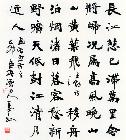 長江悲已滯萬里念
將歸況屬高風晚山
山黃葉飛移舟
泊煙渚日暮客愁新
野曠天低樹江清月
近人